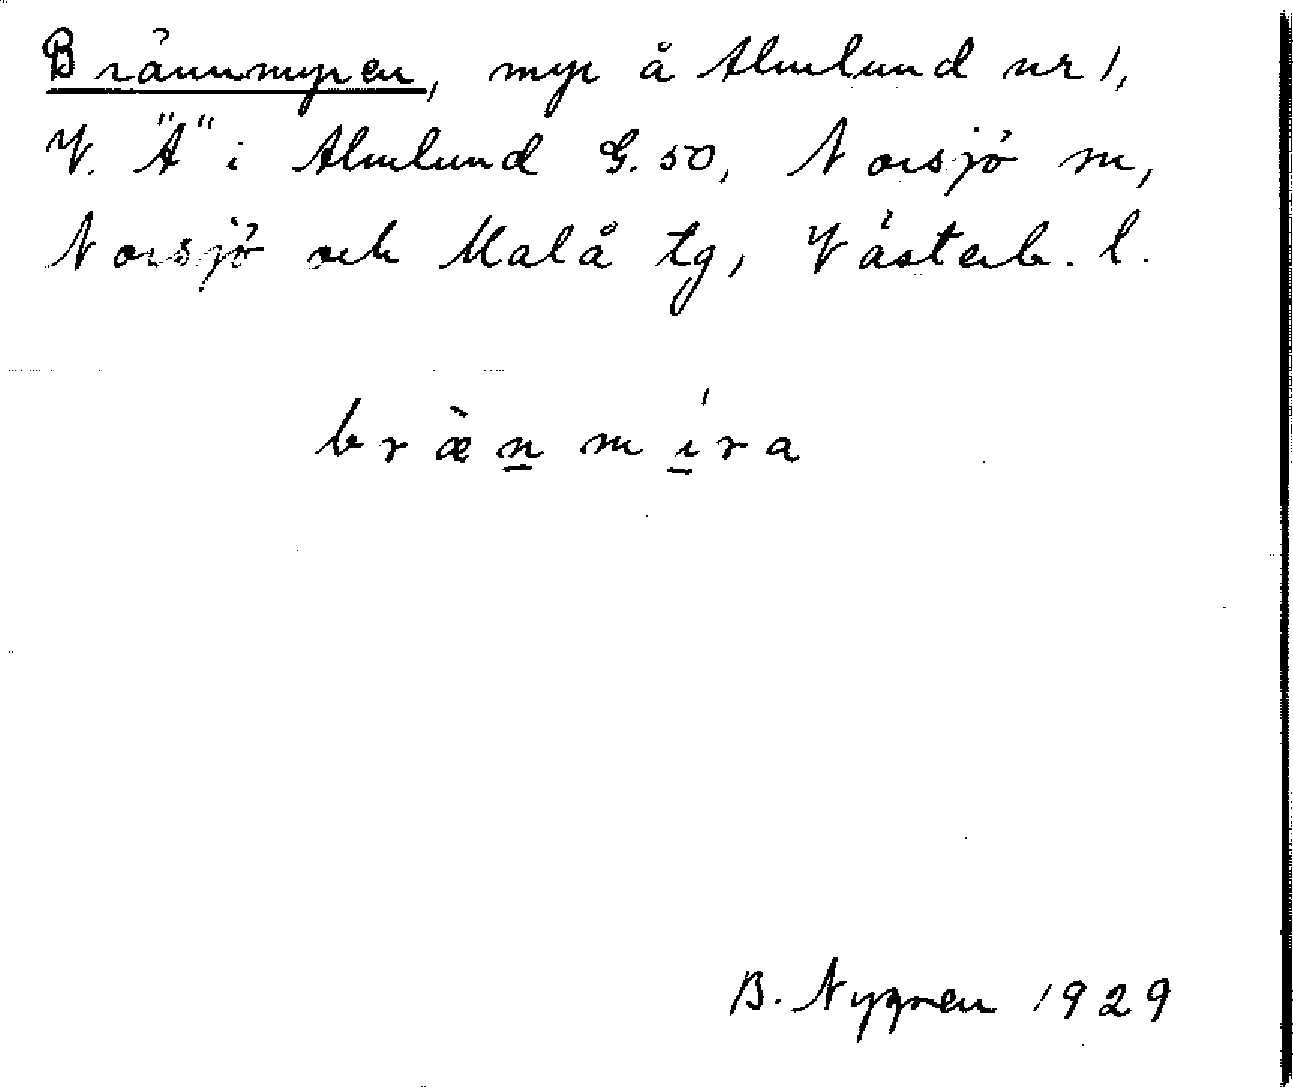 Brännmyren, myr å Almlund nr 1,
V. "Å" i Almlund G. 50, Norsjö m,
Norsjö och Malå tg, Västerb. l.
bræ̀n̲mí̲ra
B. Nygren 1929